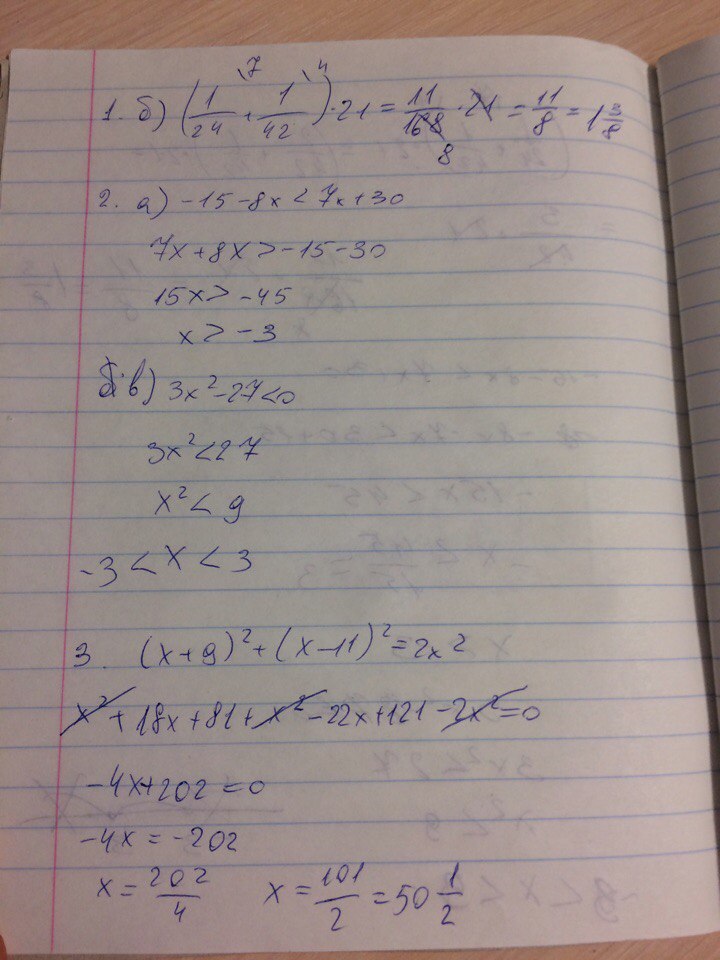 1. б) (1/24 \7 + 1/42 \4) · 21 = 11/168 8 · 21 = 11/8 = 1 3/8
2. а) -15-8x<7x+30
7x+8x>-15-30
15x>-45
x>-3
в) 3x²-27<0
3x²<27
x²<9
-3<x<3
3. (x+9)²+(x-11)²=2x²
x²+18x+81+x²-22x+121-2x²=0
-4x+202=0
-4x=-202
x=202/4 x=101/2=50 1/2